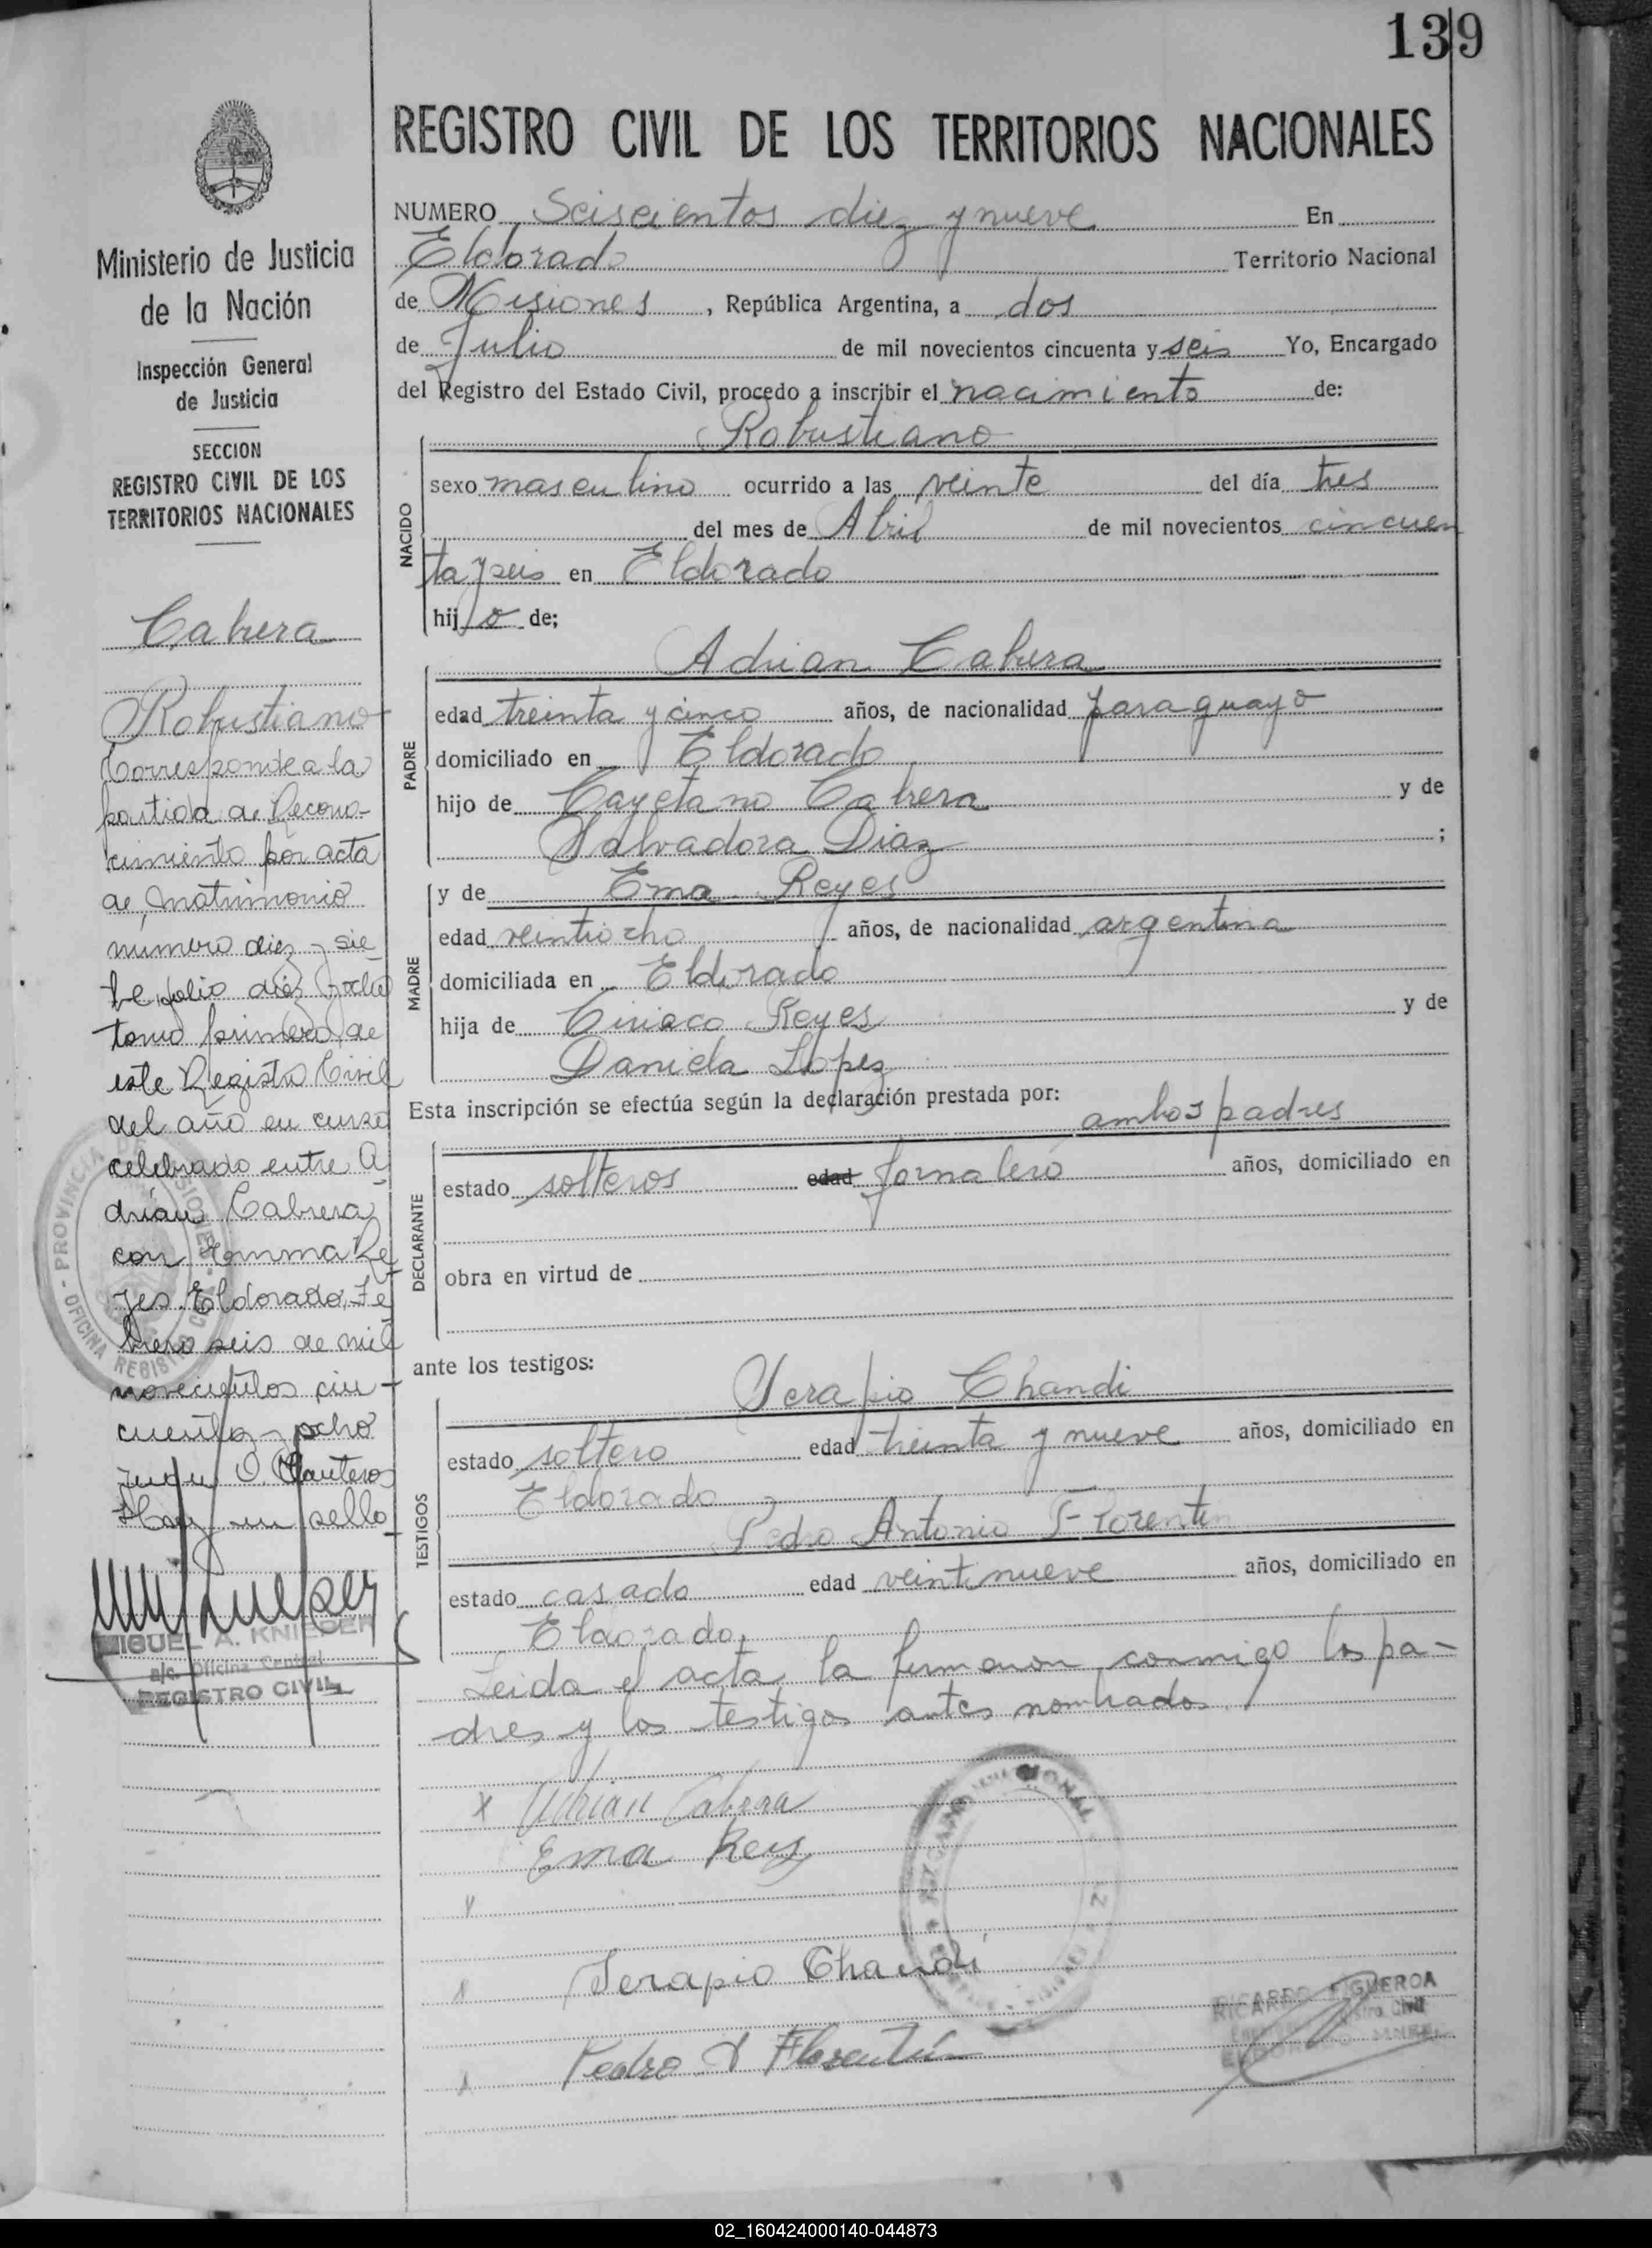 139
REGISTRO CIVIL DE LOS TERRITORIOS NACIONALES
NUMERO Seiscientos diez y nueve En
Eldorado Territorio Nacional
de Misiones, República Argentina, a dos
de Julio de mil novecientos cincuenta y seis Yo, Encargado
del Registro del Estado Civil, procedo a inscribir el nacimiento de:
Robustiano
NACIDO
sexo masculino ocurrido a las veinte del día tres
del mes de Abril de mil novecientos cincuen
ta y seis en Eldorado
hijo de;
Adrian Cabrera
PADRE
edad treinta y cinco años, de nacionalidad paraguayo
domiciliado en Eldorado
hijo de Cayetano Cabrera y de
Salvadora Diaz ;
y de Ema Reyes
MADRE
edad veintiocho años, de nacionalidad argentina
domiciliada en Eldorado
hija de Ciriaco Reyes y de
Daniela Lopez
Esta inscripción se efectúa según la declaración prestada por:
ambos padres
DECLARANTE
estado solteros edad jornalero años, domiciliado en
obra en virtud de
ante los testigos:
Serapio Chandi
TESTIGOS
estado soltero edad treinta y nueve años, domiciliado en
Eldorado
Pedro Antonio Florentin
estado casado edad veintinueve años, domiciliado en
Eldorado
Leida el acta la firmaron conmigo los pa-
dres y los testigos antes nombrados.
x Adrian Cabrera
Ema Reys
Serapio Chandi
Pedro A Florentín
RICARDO FIGUEROA
Ministerio de Justicia
de la Nación
Inspección General
de Justicia
SECCION
REGISTRO CIVIL DE LOS
TERRITORIOS NACIONALES
Cabrera
Robustiano
Corresponde a la
partida de Recono-
cimiento por acta
de matrimonio
número diez y sie-
te folio diez y ocho
tomo primero de
este Registro Civil
del año en curso
celebrado entre A
drián Cabrera
con Emma Re
yes. Eldorado, Fe
brero seis de mil
novecientos cin-
cuenta y ocho
Hay un sello
PROVINCIA MISIONES
OFICINA REGISTRO C
MIGUEL A. KNIEPER
a/c. Oficina Central
REGISTRO CIVIL
02_160424000140-044873